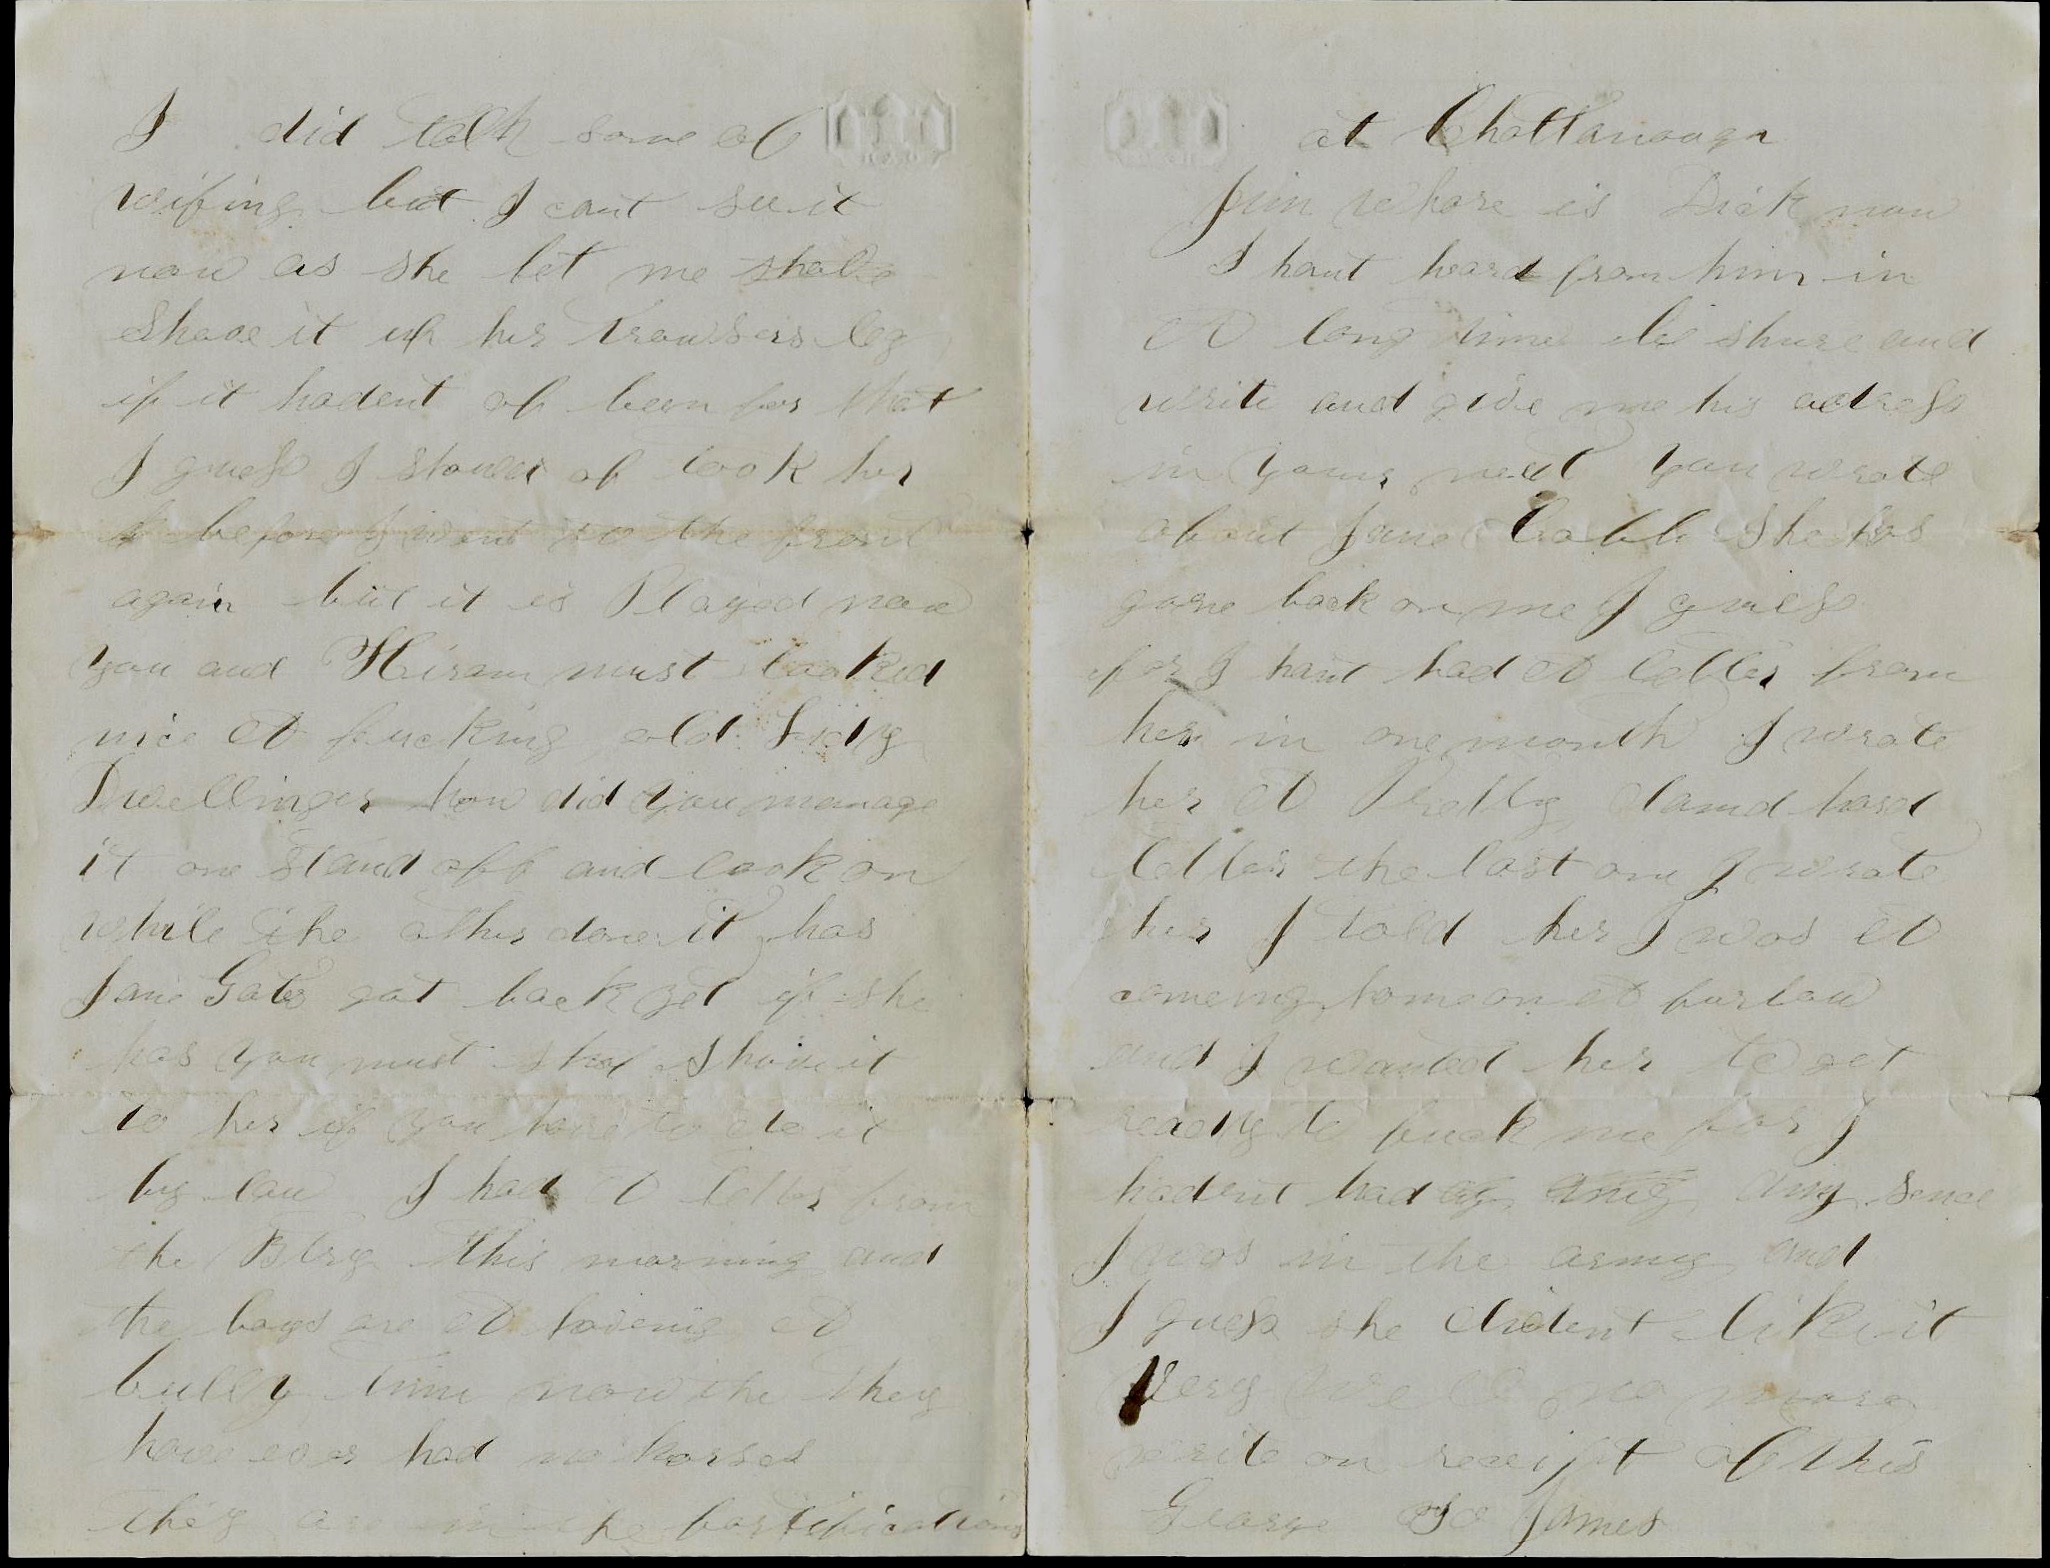 I did talk some of
wifing but I cant see it
now as she let me shove
Shove it up her trowsers leg
if it hadent of been for that
I guess I should of took her
before I went to the front
again but it is Played now
You and Hiram must looked
nice A fucking old Lidy
Dwellinger how did you manage
it one stand off and look on
while the other done it has
Jane Gates got back yet if she
has you must shov shove it
to her if you have to do it
by law I had A letter from
the Btry this morning and
the boys are A haveing A
bully time now the they
have ever had no horses
they are in the fortifications
at Chattanooga
Jim Whare is Dick now
I haint heard from him in
A long time be shure and
write and give me his adress
in your next You wrote
about Jane Cobb She has
gone back on me I guess
for I haint had A letter from
her in one month I wrote
her A Pretty damd hard
letter the last one I wrote
her I told her I was A
comeing home on A furlow
and I wanted her to get
ready to fuck me for I
hadent had any any sence
I was in the army and
I guess she dident like it
very well no more
write on receipt of this
George to James